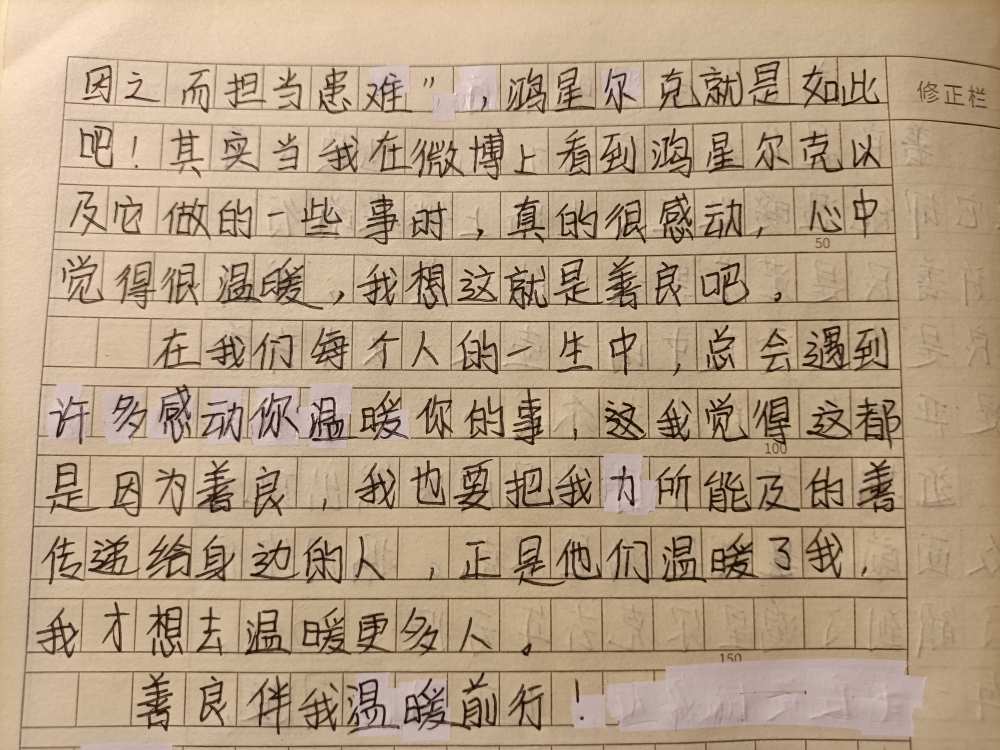 因之而担当患难”，鸿星尔克就是如此
修正栏
吧！其实当我在微博上看到鸿星尔克以
及它做的一些事时，真的很感动，心中
50
觉得很温暖，我想这就是善良吧。
在我们每个人的一生中，总会遇到
许多感动你温暖你的事，这我觉得这都
100
是因为善良，我也要把我力所能及的善
传递给身边的人，正是他们温暖了我，
我才想去温暖更多人。
150
善良伴我温暖前行！